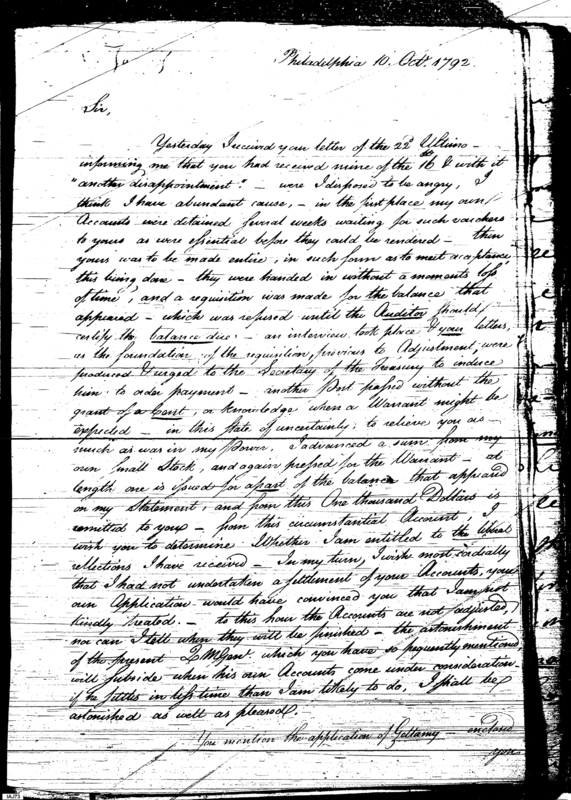 Philadelphia 10. Octr. 1792.
Sir,
Yesterday I received your letter of the 22d Ultimo
informing me that you had received mine of the 16th & with it
"another disappointment". — were I disposed to be angry, I
think I have abundant cause, — in the first place my own
Accounts were detained several weeks waiting for such vouchers
to yours as were essential before they could be rendered — then
yours was to be made entire, in such form as to meet acceptance,
this being done — they were handed in without a moments loss
of time, and a requisition was made for the balance that
appeared — which was refused until the Auditor should
certify the balance due: — an interview took place & your letters,
as the foundation of the requisition, previous to Adjustment, were
produced & urged to the Secretary of the Treasury to induce
him to order payment — another Post passed without the
grant of a Cent, or knowledge when a Warrant might be
expected — in this state of uncertainty, to relieve you as
much as was in my Power. I advanced a sum from my
own small Stock, and again pressed for the Warrant — at
length one is issued for apart of the balance that appeared
on my Statement, and from this One thousand Dollars is
remitted to you — from this circumstantial Account, I
wish you to determine Whether I am entitled to the liberal
reflections I have received — In my turn, I wish most cordially
that I had not undertaken a settlement of your Accounts, your
own Application would have convinced you that I am not
kindly treated. — to this hour the Accounts are not adjusted,
nor can I tell when they will be finished — the astonishment
of the present Q M Genl. which you have so frequently mentioned,
will subside when his own Accounts come under consideration.
if he settles in less time than I am likely to do, I shall be
astonished as well as pleased.
You mention the application of Gellamy — enclosed
you